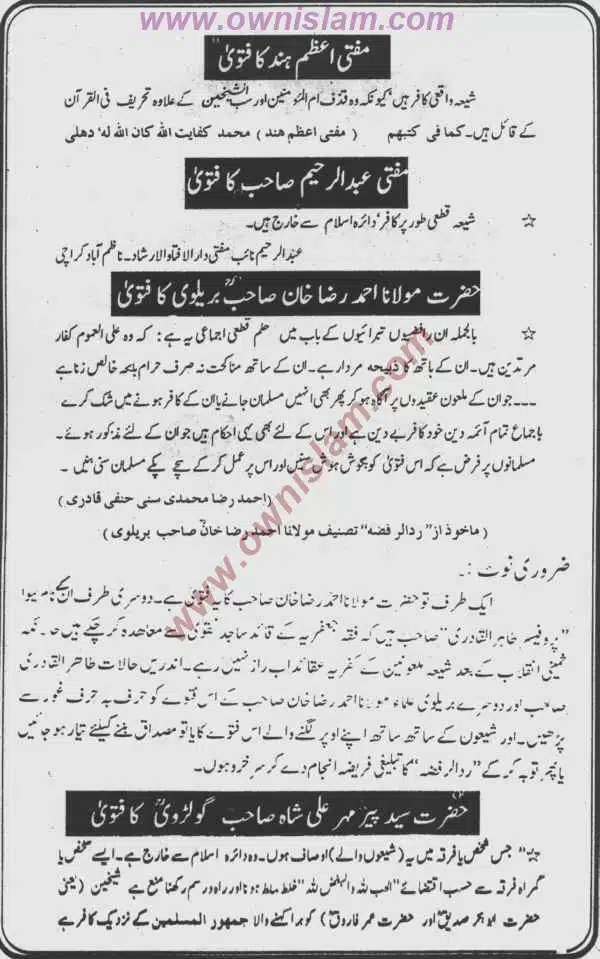 www.ownislam.com
مفتی اعظم ہند کا فتویٰ
شیعہ واقعی کافر ہیں کیونکہ وہ قذف ام المؤمنین اور سب الشیخین کے علاوہ تحریف فی القرآن
کے قائل ہیں۔ کما فی کتبھم (مفتی اعظم ھند) محمد کفایت اللہ کان اللہ لہ دھلی
مفتی عبدالرحیم صاحب کا فتویٰ
☆ شیعہ قطعی طور پر کافر دائرہ اسلام سے خارج ہیں۔
عبدالرحیم نائب مفتی دارالافتاء والارشاد۔ ناظم آباد کراچی
حضرت مولانا احمد رضا خان صاحبؒ بریلوی کا فتویٰ
☆ بالجملہ ان رافضیوں تبرائیوں کے باب میں حکم قطعی اجماعی یہ ہے: کہ وہ علی العموم کفار
مرتدین ہیں۔ ان کے ہاتھ کا ذبیحہ مردار ہے۔ ان کے ساتھ مناکحت نہ صرف حرام بلکہ خالص زنا ہے
۔۔۔ جو ان کے ملعون عقیدوں پر آگاہ ہو کر پھر بھی انہیں مسلمان جانے یا ان کے کافر ہونے میں شک کرے
باجماع تمام آئمہ دین خود کافر بے دین ہے اور اس کے لئے بھی یہی احکام ہیں جو ان کے لئے مذکور ہوئے۔
مسلمانوں پر فرض ہے کہ اس فتویٰ کو بگوش ہوش سنیں اور اس پر عمل کر کے سچے پکے مسلمان سنی بنیں۔
(احمد رضا محمدی سنی حنفی قادری)
(ماخوذ از "ردالرفضہ" تصنیف مولانا احمد رضا خانؒ صاحب بریلوی)
www.ownislam.com
ضروری نوٹ:۔
ایک طرف تو حضرت مولانا احمد رضا خان صاحب کا یہ فتویٰ ہے۔ دوسری طرف ان کے نام لیوا
"پروفیسر طاہر القادری" صاحب ہیں کہ فقہ جعفریہ کے قائد ساجد نقوی سے معاہدہ کر چکے ہیں حالانکہ
خمینی انقلاب کے بعد شیعہ ملعونین کے کفریہ عقائد اب راز نہیں رہے۔ اندریں حالات طاہر القادری
صاحب اور دوسرے بریلوی علماء مولانا احمد رضا خان صاحب کے اس فتوے کو حرف بہ حرف غور سے
پڑھیں۔ اور شیعوں کے ساتھ ساتھ اپنے اوپر لگنے والے اس فتوے کا یا تو مصداق بننے کیلئے تیار ہو جائیں
یا پھر توبہ کر کے "ردالرفضہ" کا تبلیغی فریضہ انجام دے کر سرخرو ہوں۔
حضرت سید پیر مہر علی شاہ صاحب گولڑویؒ کا فتویٰ
☆ "جس شخص یا فرقہ میں یہ (شیعوں والے) اوصاف ہوں۔ وہ دائرہ اسلام سے خارج ہے۔ ایسے شخص یا
گمراہ فرقہ سے حسب اقتضائے "الحب للہ والبغض للہ" خلط ملط ہونا اور راہ ورسم رکھنا منع ہے شیخین (یعنی
حضرت ابوبکر صدیقؓ اور حضرت عمر فاروقؓ) کو برا کہنے والا جمہور المسلمین کے نزدیک کافر ہے